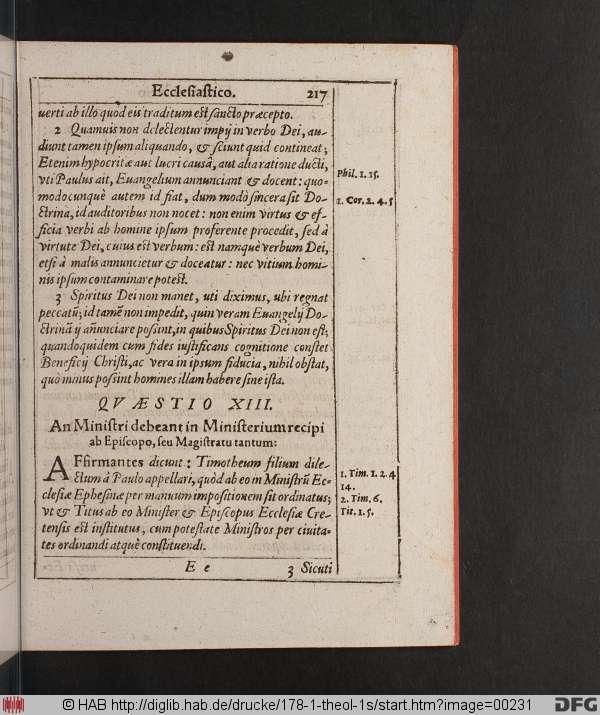 Ecclesiastico. 217
uerti ab illo quod eis traditum est sancto præcepto.
2 Quamuis non delectentur impij in verbo Dei, au-
diunt tamen ipsum aliquando, & sciunt quid contineat;
Etenim hypocritæ aut lucri causâ, aut alia ratione ducti,
vti Paulus ait, Euangelium annunciant & docent: quo-
modocunquè autem id fiat, dum modò sincera sit Do-
ctrina, id auditoribus non nocet: non enim virtus & ef-
ficia verbi ab homine ipsum proferente procedit, sed à
virtute Dei, cuius est verbum: est namquè verbum Dei,
etsi à malis annuncietur & doceatur: nec vitium homi-
nis ipsum contaminare potest.
3 Spiritus Dei non manet, uti diximus, ubi regnat
peccatū; id tamē non impedit, quin veram Euangelij Do-
ctrinā ij añunciare possint, in quibus Spiritus Dei non est;
quandoquidem cum fides iustificans cognitione constet
Beneficij Christi, ac vera in ipsum fiducia, nihil obstat,
quò minus possint homines illam habere sine ista.
QVÆSTIO XIII.
An Ministri debeant in Ministerium recipi
ab Episcopo, seu Magistratu tantum:
AFfirmantes dicunt: Timotheum filium dile-
ctum à Paulo appellari, quòd ab eo in Ministrū Ec-
clesiæ Ephesinæ per manuum impositionem sit ordinatus;
vt & Titus ab eo Minister & Episcopus Ecclesiæ Cre-
tensis est institutus, cum potestate Ministros per ciuita-
tes ordinandi atquè constituendi.
E e 3 Sicuti
Phil. 1. 15.
1. Cor. 2. 4. 5
1. Tim. 1. 2. 4
14.
2. Tim. 6.
Tit. 1. 5.
© HAB http://diglib.hab.de/drucke/178-1-theol-1s/start.htm?image=00231
DFG